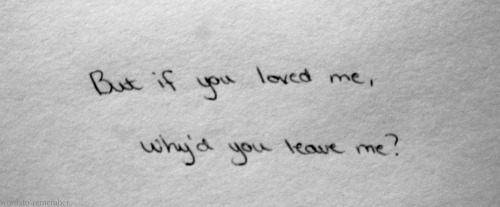 But if you loved me,
why'd you leave me?